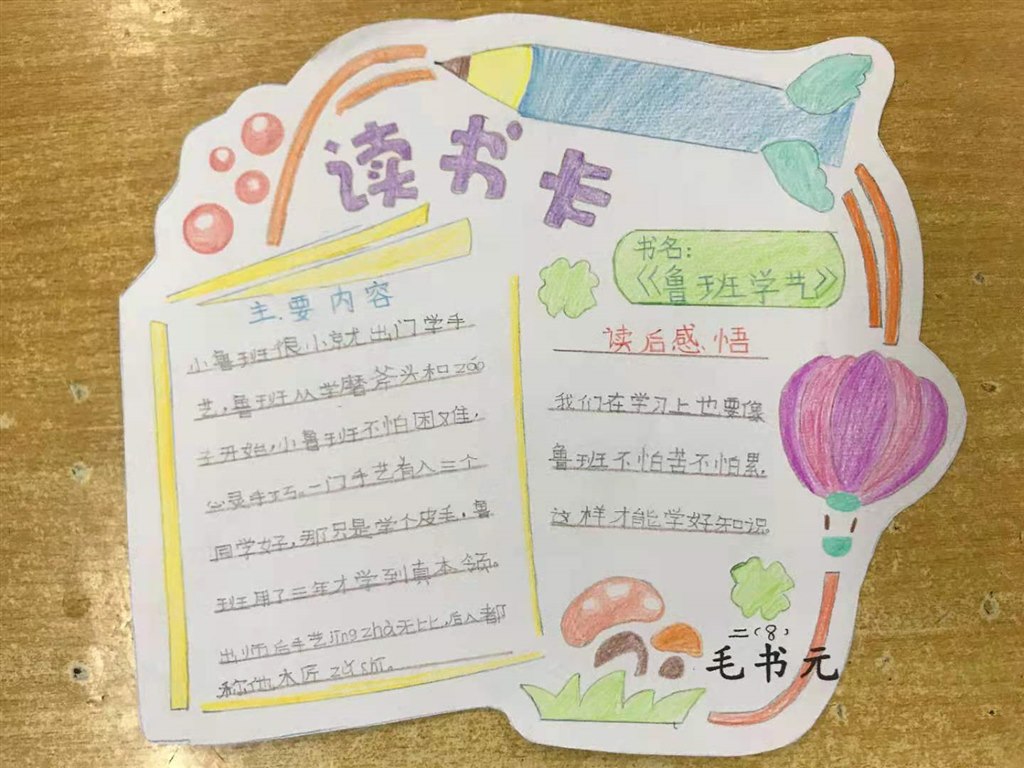 读书卡
主要内容
小鲁班很小就出门学手
艺，鲁班从学磨斧头和zóo
主开始，小鲁班不怕困难，
心灵手巧。一门手艺有人三个
同学好，那只是学个皮毛，鲁
班用了三年才学到真本领。
出师后手艺jīngzhà无比，后人都
称他木匠zǔshī。
书名：
《鲁班学艺》
读后感悟
我们在学习上也要像
鲁班不怕苦不怕累，
这样才能学好知识。
二（8）
毛书元